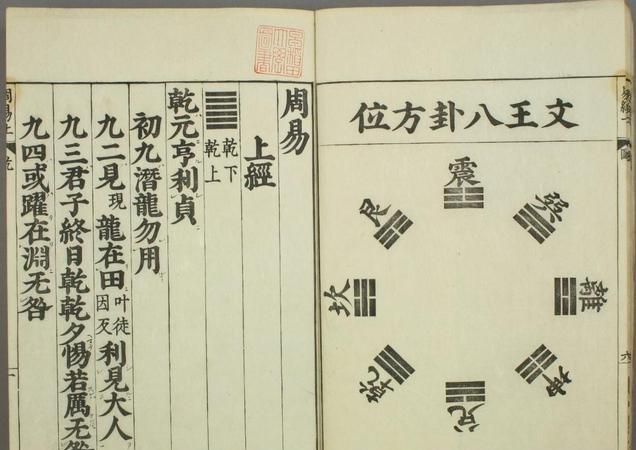 文王八卦方位
震
巽
離
坤
兌
乾
坎
艮
周易
上經
乾下
乾上
乾元亨利貞
初九潛龍勿用
九二見現龍在田叶徒因反利見大人
九三君子終日乾乾夕惕若厲无咎
九四或躍在淵无咎
周易上
乾
六